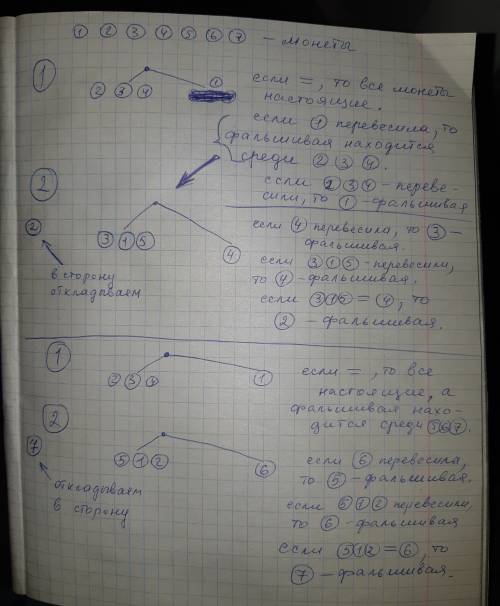 1 2 3 4 5 6 7 – монеты
1
2 3 4
1
если =, то все монеты
настоящие.
если 1 перевесила, то
фальшивая находится
среди 2 3 4.
если 2 3 4 – переве-
сили, то 1 – фальшивая
2
2
в сторону
откладываем
3 1 5
4
если 4 перевесила, то 3 –
фальшивая.
если 3 1 5 – перевесили,
то 4 – фальшивая.
если 3 1 5 = 4, то
2 – фальшивая.
1
2 3 4
1
если =, то все
настоящие, а
фальшивая нахо-
дится среди 5 6 7.
2
7
откладываем
в сторону
5 1 2
6
если 6 перевесила,
то 5 – фальшивая.
если 5 1 2 перевесили,
то 6 – фальшивая
если 5 1 2 = 6, то
7 – фальшивая.